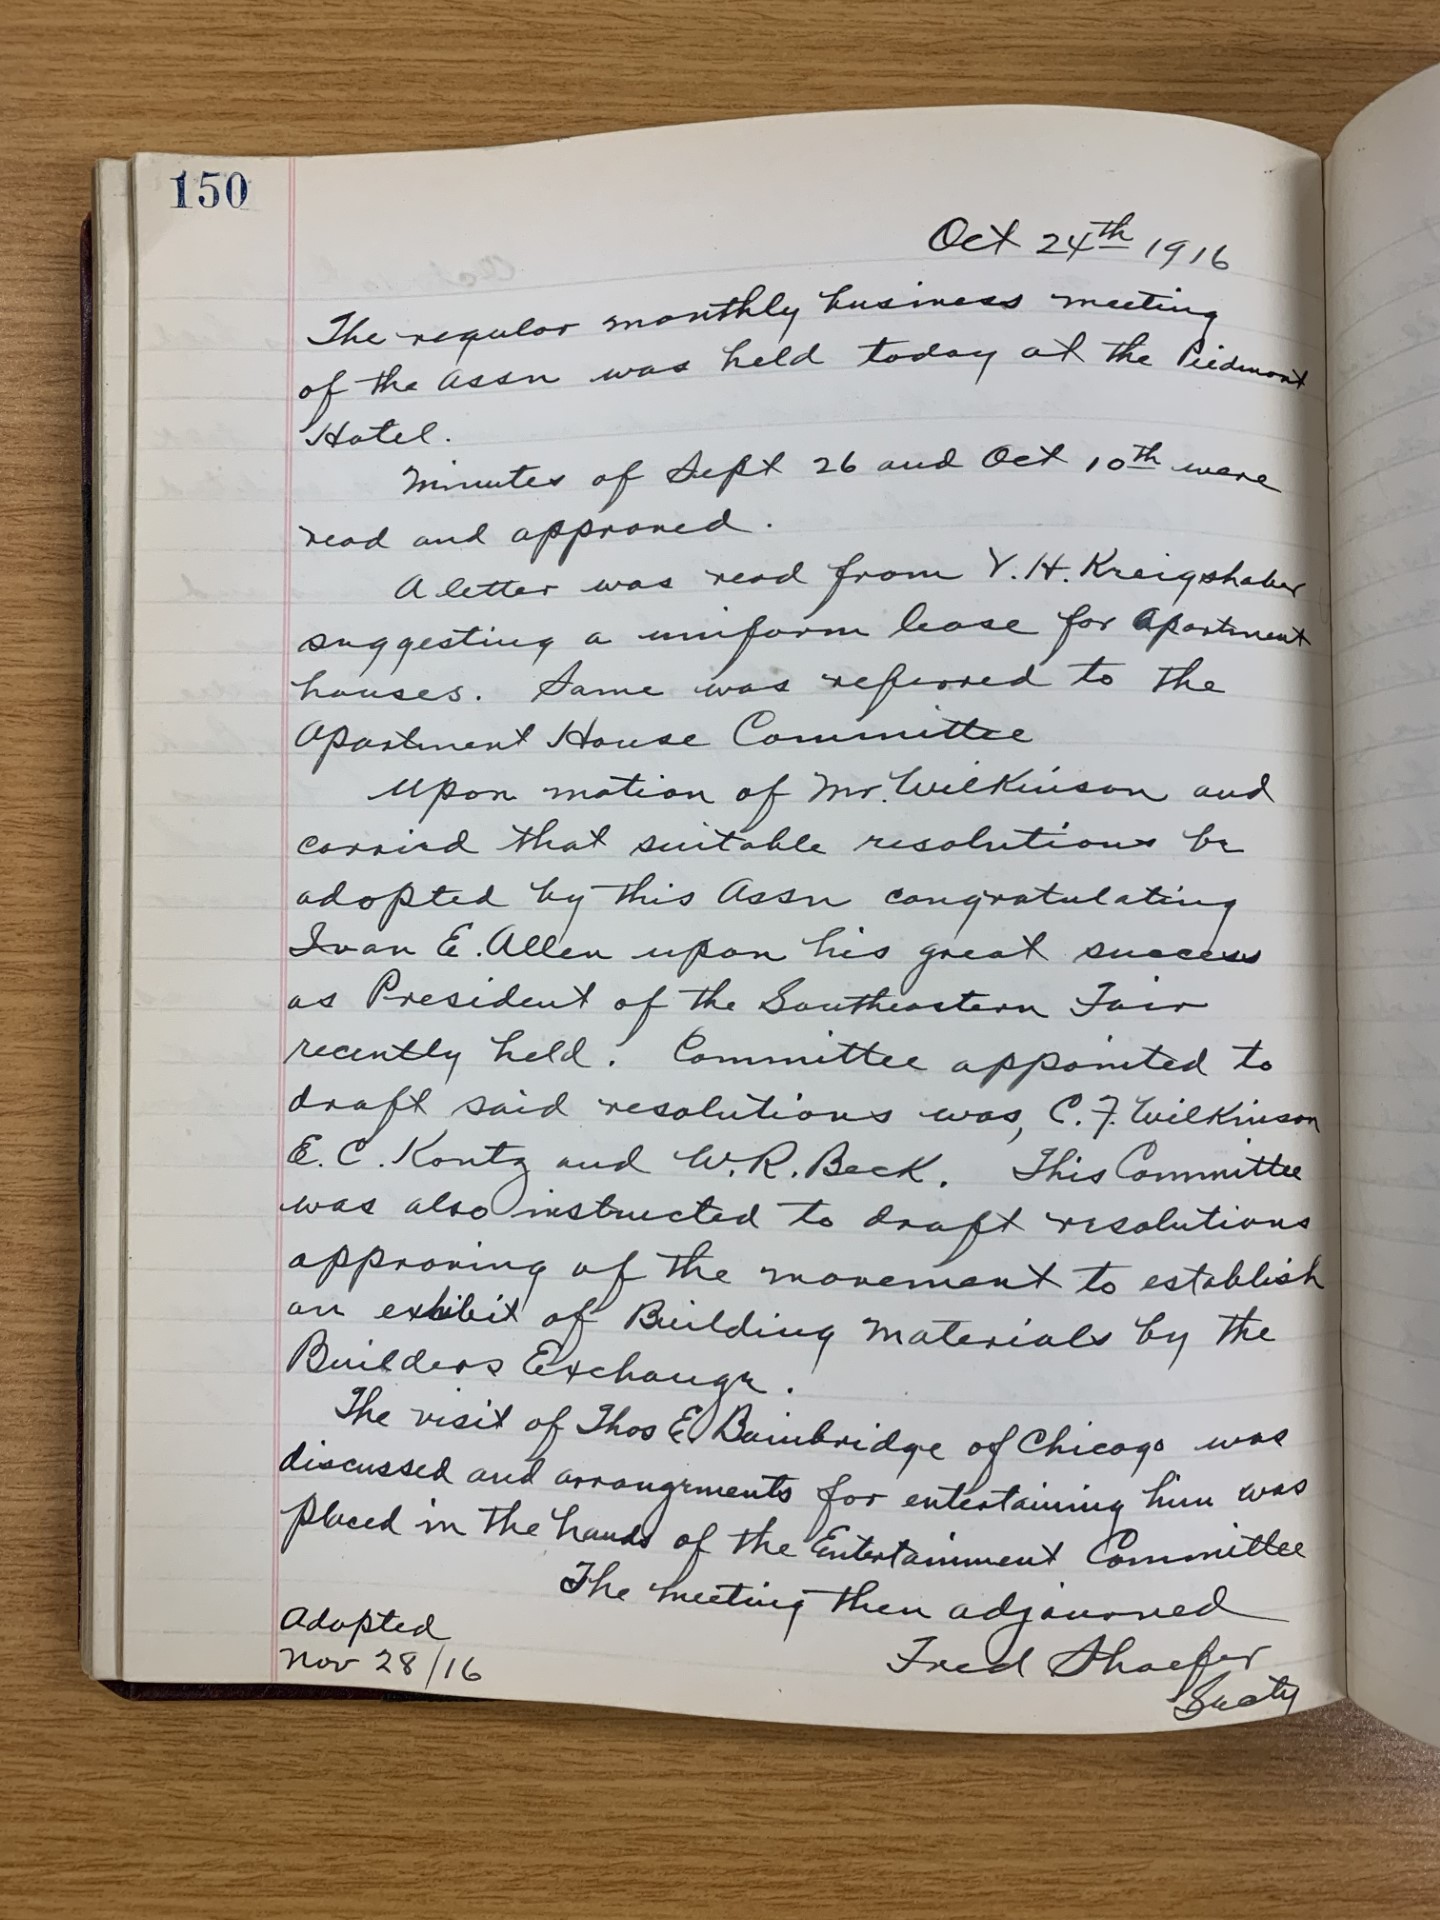 150
Oct 24th 1916
The regular monthly business meeting
of the Assn was held today at the Piedmont
Hotel.
Minutes of Sept 26 and Oct 10th were
read and approved.
A letter was read from V. H. Kreigshaber
suggesting a uniform lease for Apartment
houses. Same was referred to the
Apartment House Committee
Upon motion of Mr. Wilkinson and
carried that suitable resolutions be
adopted by this Assn congratulating
Ivan E. Allen upon his great success
as President of the Southeastern Fair
recently held. Committee appointed to
draft said resolutions was, C. F. Wilkinson
E. C. Kontz and W. R. Beck. This Committee
was also instructed to draft resolutions
approving of the movement to establish
an exhibit of Building Materials by the
Builders Exchange.
The visit of Thos E. Bainbridge of Chicago was
discussed and arrangements for entertaining him was
placed in the hands of the Entertainment Committee
The meeting then adjourned
Adopted
Nov 28/16
Fred Shaefer
Secty